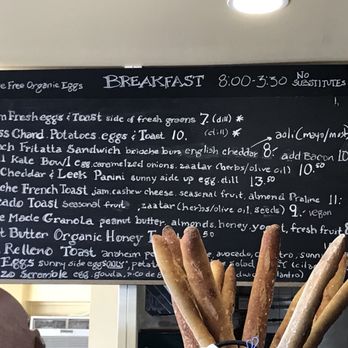 e Free Organic Eggs BREAKFAST 8:00-3:30 NO SUBSTITUTES
m Fresh eggs & Toast side of fresh greens 7. (dill) *
ss Chard. Potatoes. eggs & Toast 10. (dill) *
aoli (mayo/must
nch Frittata Sandwich brioche buns english cheddar 8. add Bacon 10
l Kale Bowl egg. caramelized onions. zaatar (herbs/olive oil) 10.50
Cheddar & Leek Panini sunny side up egg. dill 13.50
che French Toast jam, cashew cheese, seasonal fruit, almond Praline 11.
cado Toast Seasonal fruit, zaatar (herbs/olive oil, seeds) 9. vegan
e Made Granola peanut butter, almonds, honey, yogurt, fresh fruit 8
t Butter Organic Honey T .50
Relleno Toast anaheim avocado, cilantro, sunn
Eggs sunny side eggs potat salad
zo Scramble egg, gouda, cilantro)